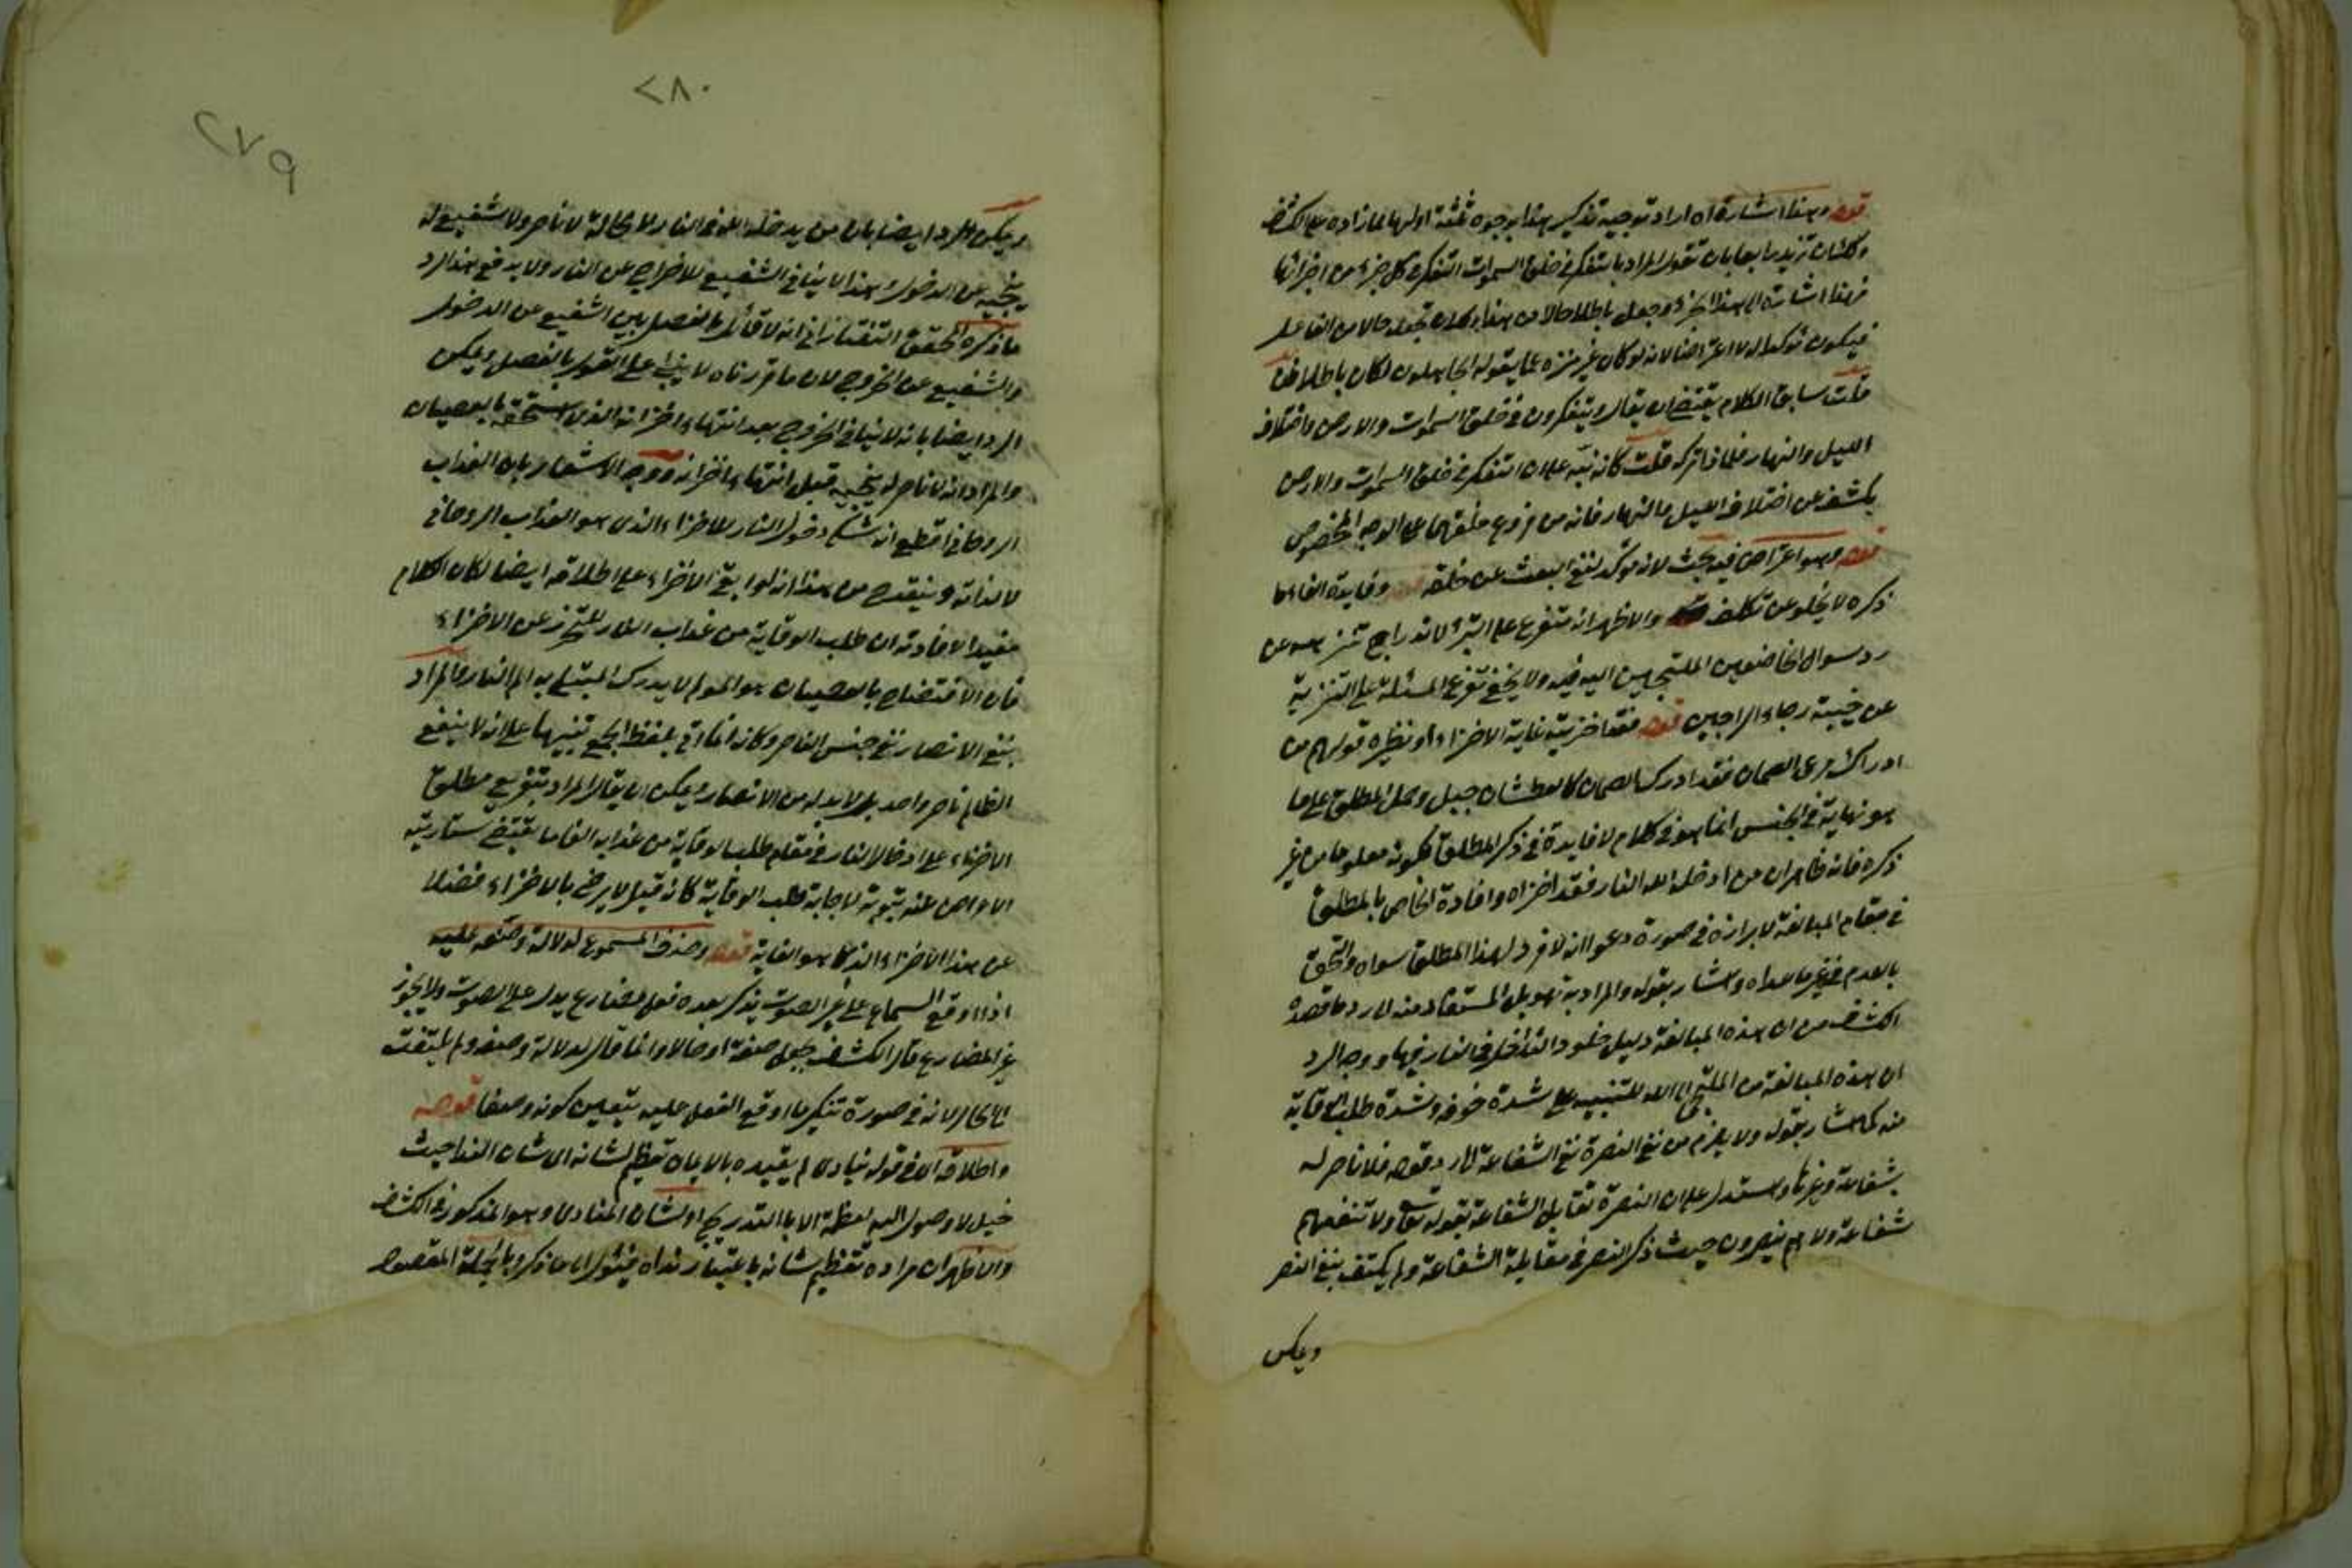 قوله وهذا اشارة اه اراد توجيه تذكير هذا بوجوه ثلثة اولها مما زاده على الكشاف
ولك ان تزيد رابعا بان تقول المراد بالتفكر في خلق السموات التفكر في كل جزء من اجزائها
فهذا اشارة الى هذا الجزء وجعل باطلا حالا من هذا ولك ان تجعله حالا من الفاعل
فيكون توكيدا له لا اعتراضا لانه لو كان غير منزه عما يقوله الجاهلون لكان باطلا فان
قلت سابق الكلام يقتضي ان يقال ويتفكرون في خلق السموات والارض واختلاف
الليل والنهار فلماذا تركه قلت كانه نبه على ان التفكر في خلق السموات والارض
يكشف عن اختلاف الليل والنهار فانه من فروع خلقهما على الوجه المخصوص
قوله وهو اعتراض فيه بحث لانه مؤكد لنفي البعث عن خلقه وفايدة الفاء ما
ذكره لا يخلو عن تكلف والاظهر انه متفرع على التنزيه لاندراج تنزهه عن
رد سوال الخاضعين الملتجئين اليه فيه ولا يخفى تفرع المسئلة على التنزيه
عن خيبة رجاء الراجين قوله فقد اخزيته غاية الاخزاء اه ونظيره قولهم من
ادرك مرعى الصمان فقد ادرك الصمان كالعطشان جبل وحمل المطلق على ما
هو نهاية في الجنس انما هو في كلام لا فايدة في ذكر المطلق لكونه معلوما من غير
ذكره فانه ظاهر ان من ادخله الله النار فقد اخزاه وافادة الخاص بالمطلق
في مقام المبالغة لابرازه في صورة دعوى انه لا فرد لهذا المطلق سواه والتحق
بالعدم غيره ما عداه واشار بقوله والمراد به تهويل المستعاذ منه الى رد ما قصده
الكشاف من ان هذه المبالغة دليل خلود الداخل في النار فيها ووجه الرد
ان هذه المبالغة من الملتجي الى الله للتنبيه على شدة خوفه وشدة طلب الوقاية
منه كما اشار بقوله ولا يلزم من نفي النصرة نفي الشفاعة الى رد قوله فلا ناصر له
بشفاعة وغيرها واستدل على ان النصرة تقابل الشفاعة بقوله تعالى ولا تنفعهم
شفاعة ولا هم ينصرون حيث ذكر النصر في مقابلة الشفاعة ولم يكتف بنفي النصر
ويمكن
٢٨٠
٢٧٩
ويمكن الرد ايضا بان من يدخله الله في النار لا محالة لا ناصر ولا شفيع له
ينجيه من الدخول وهذا لا ينافي الشفيع للاخراج عن النار ولا يدفع هذا الرد
ما ذكره المحقق التفتازاني انه لا قائل بالفصل بين الشفيع عن الدخول
والشفيع عن الخروج لان ما قررناه لا يبتنى على القول بالفصل ويمكن
الرد ايضا بانه لا ينافي الخروج بعد انتهاء اخزائه الذي استحقه بالعصيان
والمراد انه لا ناصر له ينجيه قبل انتهاء اخزائه ووجه الاشعار بان العذاب
الروحاني اقطع انه شكى دخول النار للاخزاء الذي هو العذاب الروحاني
لا لذاته وينقدح من هذا انه لو ابقى الاخزاء على اطلاقه ايضا لكان الكلام
مفيدا لافادته ان طلب الوقاية من عذاب النار للتحرز عن الاخزاء
فان الافتضاح بالعصيان هو المولم لا يدرك المبتلى به الم النار والمراد
بنفي الانصار نفي جنس الناصر وكانه انما اتى بلفظ الجمع تنبيها على انه لا ينفع
الظالم ناصر واحد بل لا بد له من الانصار ويمكن ان يقال المراد بتفريع مطلق
الاخزاء على ادخال النار في مقام طلب الوقاية من عذاب النار ما يقتضي ستاريته
الاعراض عنه بتوبة لاجابة طلب الوقاية كانه قيل لا يرضى بالاخزاء فضلا
عن هذا الاخزاء الذي هو الغاية قوله وحذف المسموع لدلالة وصفه عليه
اذا اوقع السماع على غير الصوت يذكر بعده فعل مضارع يدل على الصوت ولا يجوز
غير المضارع قال الكشاف يجعل صفة او حالا وانما قال لدلالة وصفه ولم يلتفت
الى الحال لانه في صورة تنكير ما اوقع الفعل عليه يتعين كونه وصفا قوله
واطلاقه اي في قوله ينادي لم يقيده بالايمان تعظيم لشانه اي شان النداء حيث
خيل لا وصول اليه لعظمه الا بالتدريج او لشان المنادي وهو المذكور في الكشاف
والاظهر ان مراده تعظيم شانه باعتبار نداه فيئول الى ما ذكر وبالجملة المقصود